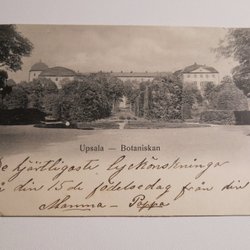 Upsala — Botaniskan
De hjärtligaste lyckönskningar
på din 15de födelsedag från din
Mamma – Pappa